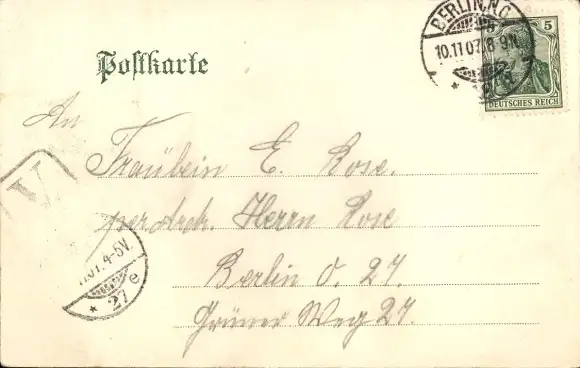 Postkarte
BERLIN. N.O.
10.11.07. 8-9N.
5
DEUTSCHES REICH
An
Fräulein E. Rose.
per Adr. Herrn Rose
Berlin O. 27.
Grüner Weg 27.
V
07. 4-5V.
* 27 e